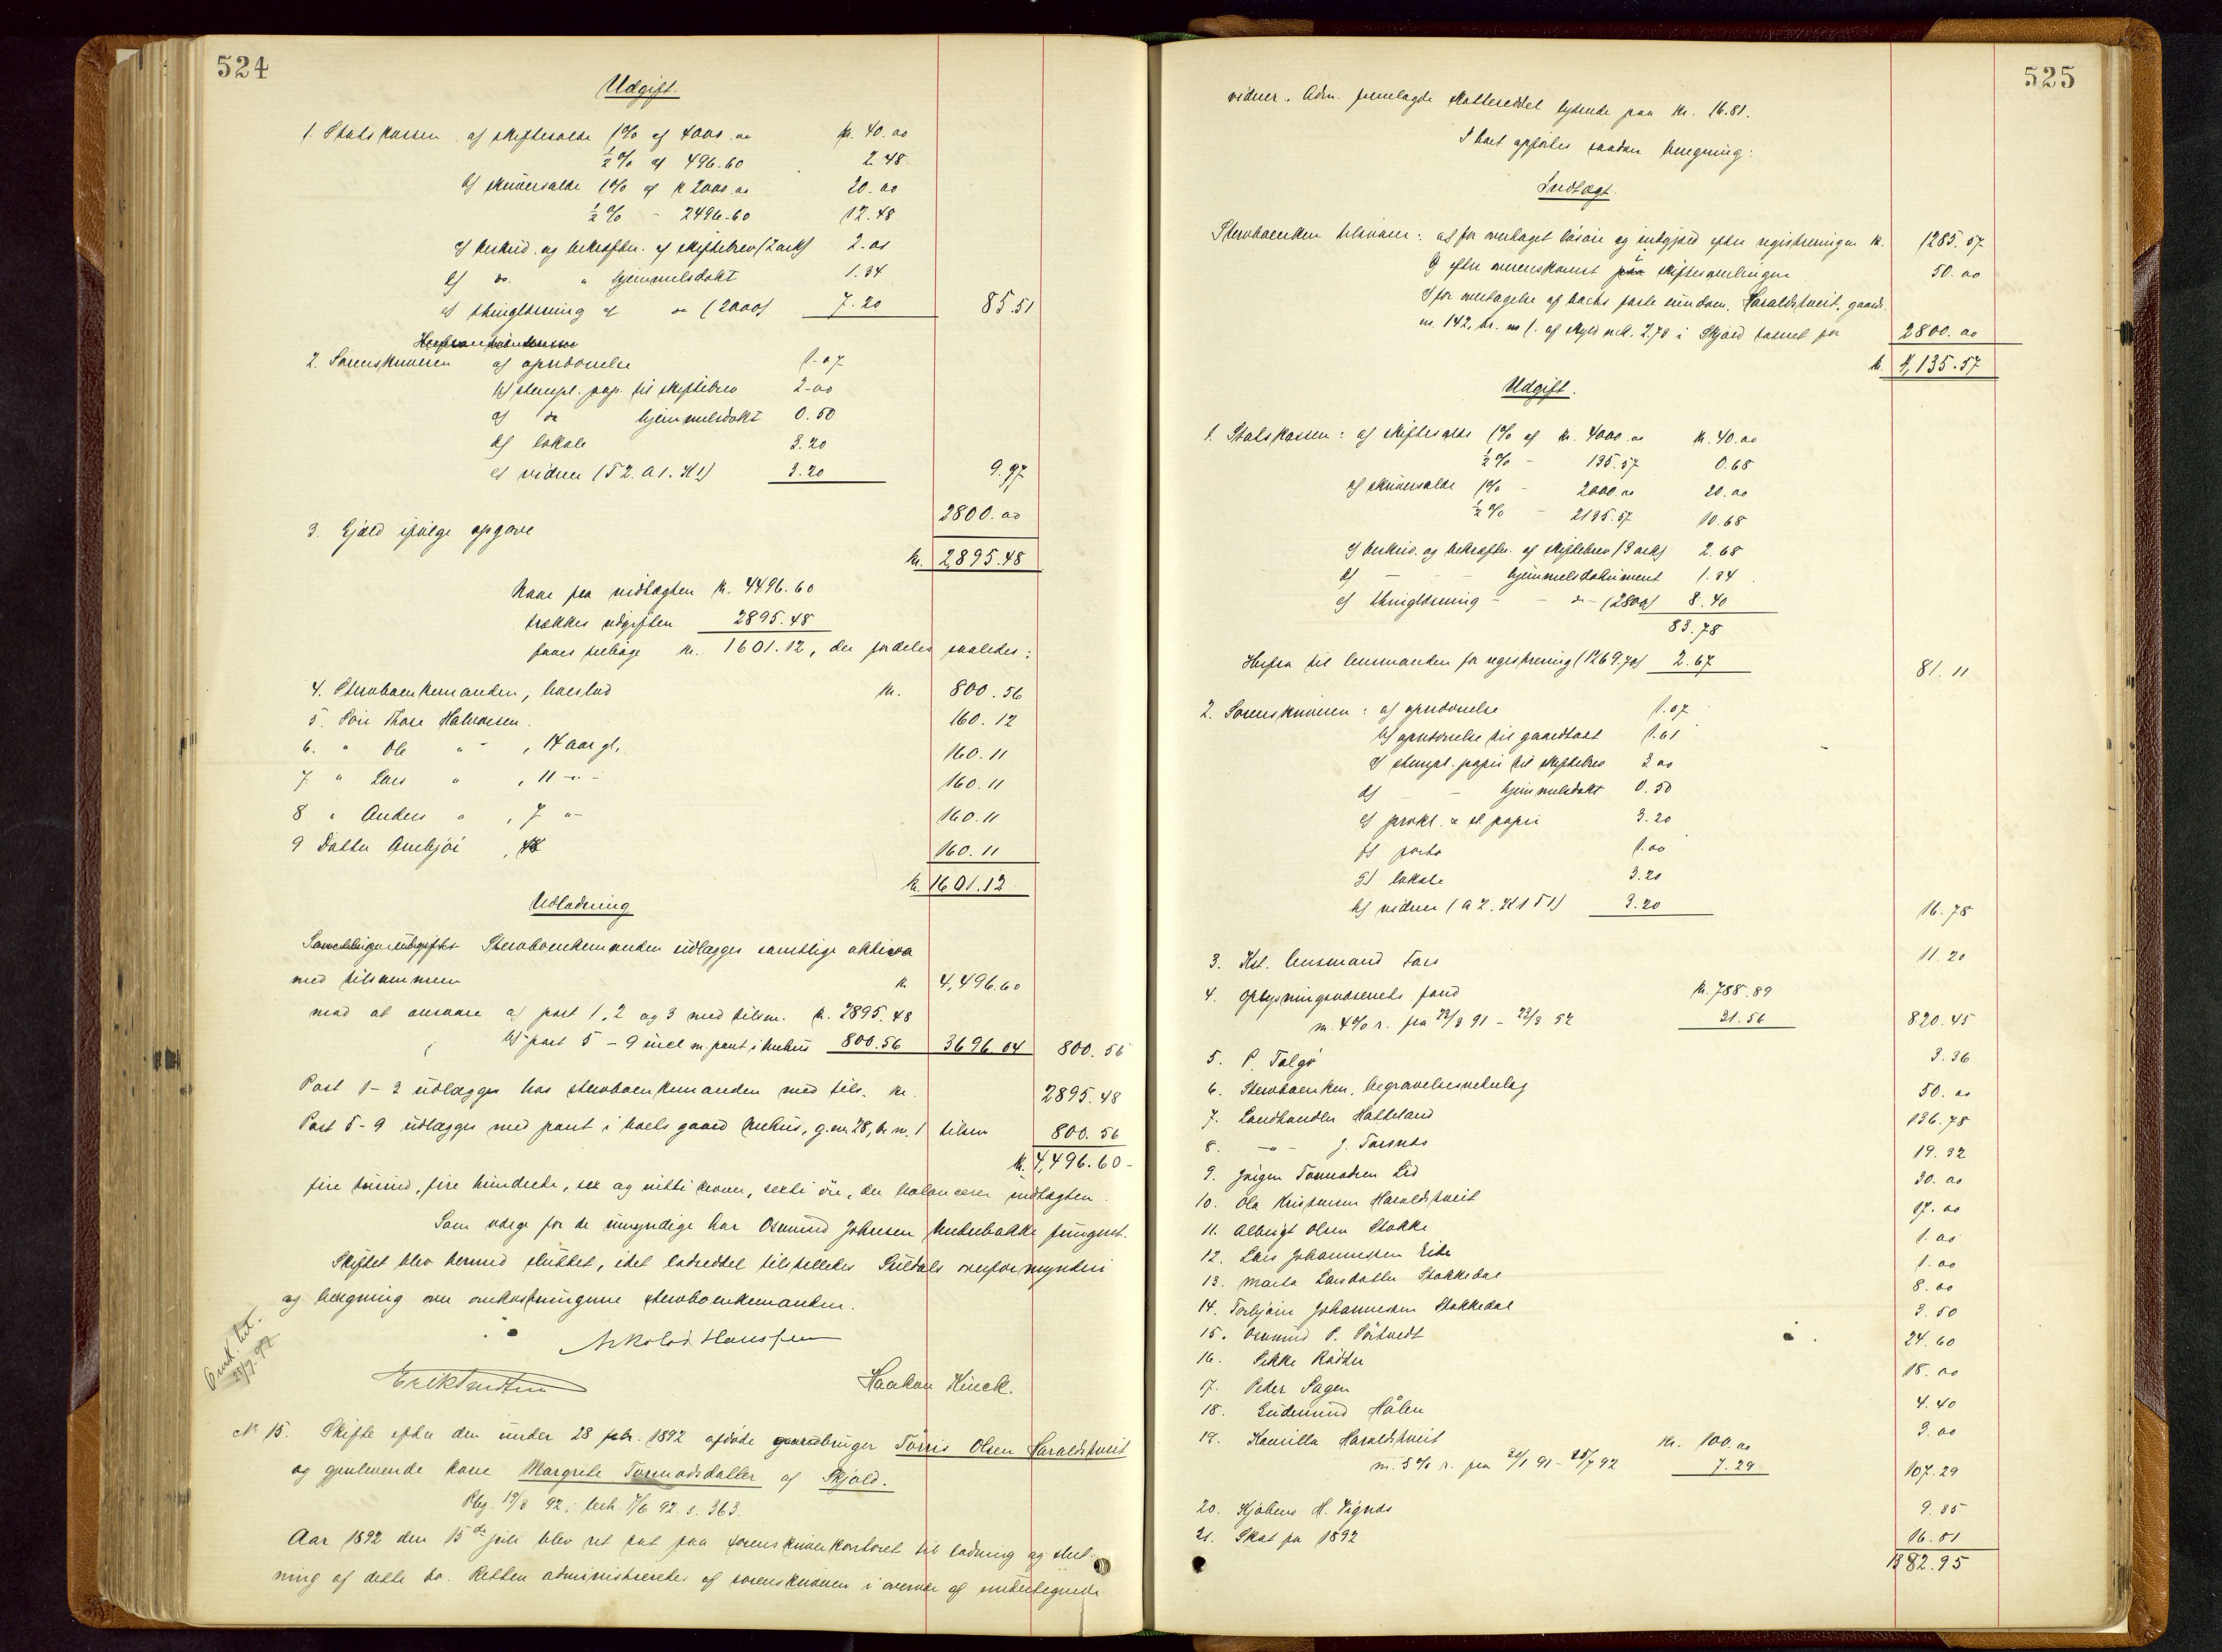 524
Udgift.
1. Statskassen a/ skiftesalær 1% af 4000.00 kr. 40.00
½% af 496.60 2.48
b/ skriversalær 1% af kr 2000.00 20.00
½% - 2496.60 12.48
c/ beskriv. og bekræftn. af skiftebrev (2 ark) 2.00
d/ do. " hjemmelsdokt 1.34
e/ thinglæsning af do (2000) 7.20 85.51
2. Sorenskriveren a/ agtsdonelse 1.07
b/ stempl. pap. til skiftebrev 2.00
c/ do hjemmelsdokt 0.50
d/ lokale 3.20
e/ vidner (T2. A1. H1) 3.20 9.97
3. Gjæld ifølge opgave 2800.00
kr. 2,895.48
Naar fra indtægten kr. 4496.60
trækkes udgiften 2895.48
faaes tilbage kr. 1601.12, der fordeles saaledes:
4. Stervboenkemanden, boeslod kr. 800.56
5. Søn Thore Halvorsen. 160.12
6. " Ole " - , 14 aar gl. 160.11
7 " Lars " , 11 - " - 160.11
8 " Anders " , 7 " - 160.11
9 Datter Ambjør , 160.11
kr. 1601.12
Udlodning
Stervboenkemanden udlægges samtlige aktiva
med tilsammen kr 4,496.60
mod at ansvare a/ post 1, 2 og 3 med tilsm. kr. 2895.48
b/ post 5 - 9 incl m. pant i 800.56 3696.04 800.56
Post 1-3 udlægges hos stervboenkemanden med tils. kr. 2895.48
Post 5-9 udlægges med pant i boets gaard, g.nr. 28, br nr. 1 tilsm 800.56
kr. 4,496.60 -
fire tusind, fire hundrede, sex og nitti kroner, sexti øre, der balancerer indtægten.
Som værge for de umyndige har Osmund Johnsen fungeret.
Skiftet blev hermed sluttet, idet lodseddel tilstilledes Suldals overformynderi
og beregning over omkostningerne stervboenkemanden.
Nikolai Hanssen
Haakon Hinck.
No 15. Skifte efter den under 28 febr. 1892 afdøde gaardbruger Tørris Olsen Haraldstveit
og gjenlevende kone Margrete Tormodsdatter af Skjold.
Reg. 19/3 92; beh. 7/6 92. s. 363.
Aar 1892 den 15de juli blev ret sat paa sorenskriverkontoret til lodning og slut-
ning af dette bo. Retten administreredes af sorenskriveren i overvær af undertegnede
525
vidner. Adm. fremlagde skatteseddel lydende paa kr. 16.81.
I boet opføres saadan beregning:
Indtægt.
Stervboenken tilsvarer: a/ for overtaget løsøre og indgjæld efter registreringen kr. 1285.57
b/ efter overenskomst i skiftesamlingen 50.00
c/ for overtagelse af boets faste eiendom, Haraldstveit, gaards-
nr. 142, br. nr 1. af skyld mk. 2.78 i Skjold taxeret for 2800.00
kr. 4,135.57
Udgift.
1. Statskassen: a/ skiftesalær 1% af kr. 4000.00 kr. 40.00
½% - 135.57 0.68
b/ skriversalær 1% - 2000.00 20.00
½% - 2135.57 10.68
c/ beskriv. og bekræftn. af skiftebrev (3 ark) 2.68
d/ - - hjemmelsdokument 1.34
e/ thinglæsning - - do - (2800) 8.40
83.78
Herfra til lensmanden for registrering (1269.70) 2.67 81.11
2. Sorenskriveren: a/ agtsdonelse 1.07
b/ agtsdonelse til gaardtaxt 1.61
c/ stempl. papir til skiftebrev 3.00
d/ - - hjemmelsdokt 0.50
e/ prokl. & st. papir 3.20
f/ porto 1.00
g/ lokale 3.20
h/ vidner (A2. H1 T1) 3.20 16.78
3. Kst. lensmand Fars 11.20
4. Oplysningsvæsenets fond kr. 788.89
m. 4% r. fra 22/3 91 - 22/3 92 31.56 820.45
5. P. Talgø 3.36
6. Stervboenken, begravelsesvederlag 50.00
7. Landhandler Hatteland 136.78
8. - " - J. Tørsnes 19.32
9. Jørgen Tormodsen Lid 30.00
10. Ola Kristensen Haraldstveit 17.00
11. Albrigt Olsen Stakke 1.00
12. Lars Johannessen Eide 1.00
13. Marta Larsdatter Stakkedal 8.00
14. Torbjørn Johannessen Stakkedal 3.50
15. Osmund P. Sørtvedt 24.60
16. Sikke Rødder 18.00
17. Peder Sagen 4.40
18. Gudmund Hålen 3.00
19. Kamilla Haraldstveit kr. 100.00
m. 5% r. fra 31/1 91 - 15/7 92 7.29 107.29
20. Kjøbm. H. Vignes 9.35
21. Skat for 1892 16.81
1382.95